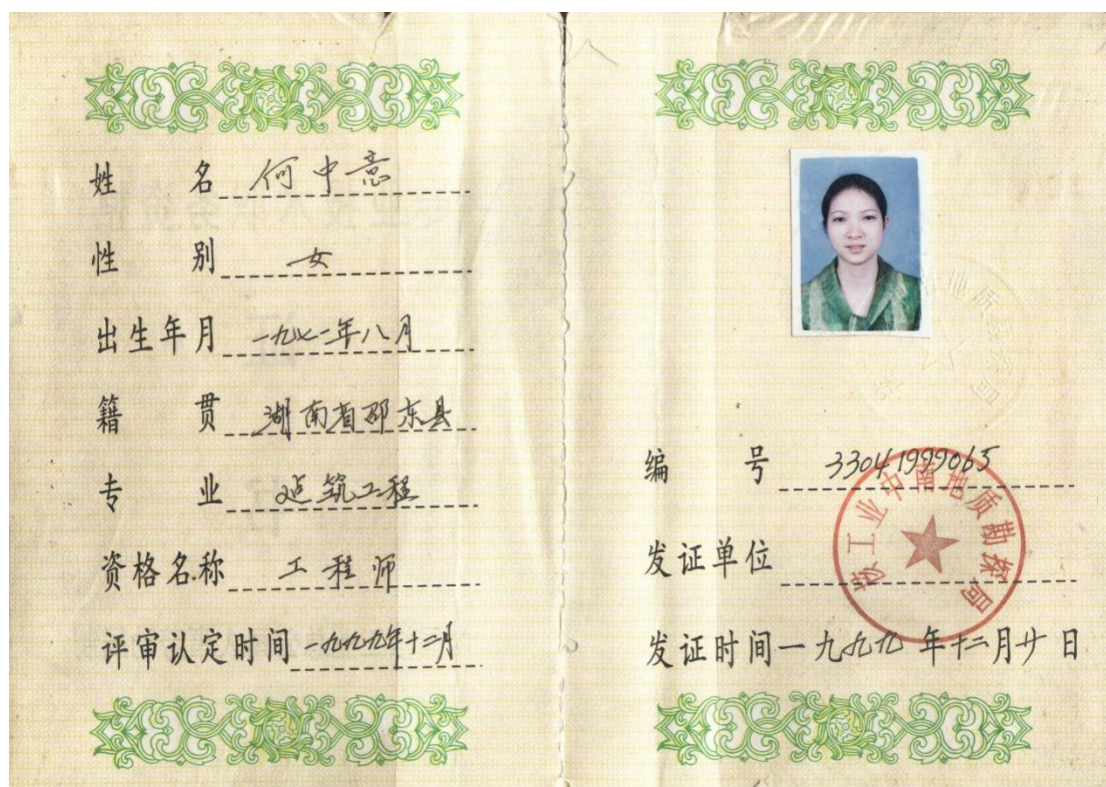 姓 名 何中意
性 别 女
出生年月 一九七一年八月
籍 贯 湖南省邵东县
专 业 建筑工程
资格名称 工程师
评审认定时间 一九九九年十二月
地质勘探局
编 号 33041999065
发证单位
核工业中南地质勘探局
发证时间 一九九九年十二月廿日